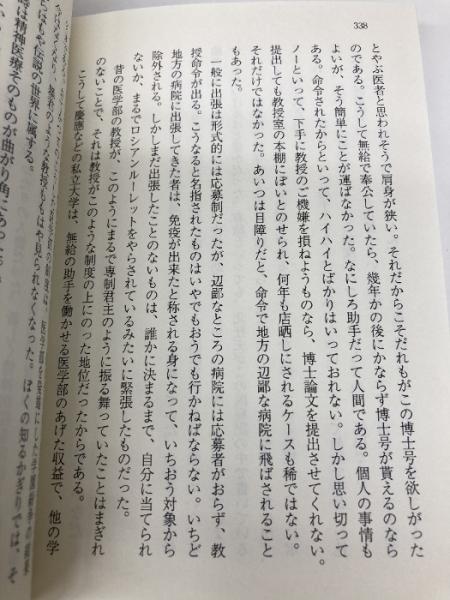 338
とやぶ医者と思われそうで肩身が狭い。それだからこそだれもがこの博士号を欲しがった
のである。こうして無給で奉公していたら、幾年かの後にかならず博士号が貰えるのなら
よいが、そう簡単にことが運ばなかった。なにしろ助手だって人間である。個人の事情も
ある。命令されたからといって、ハイハイとばかりはいっておれない。しかし思い切って
ノーといって、下手に教授のご機嫌を損ねようものなら、博士論文を提出させてくれない。
提出しても教授室の本棚にぽいとのせられ、何年も店晒しにされるケースも稀ではない。
それだけではなかった。あいつは目障りだと、命令で地方の辺鄙な病院に飛ばされること
もあった。
一般に出張は形式的には応募制だったが、辺鄙なところの病院には応募者がおらず、教
授命令が出る。こうなると名指されたものはいやでもおうでも行かねばならない。いちど
地方の病院に出張してきた者は、免疫が出来たと称される身になって、いちおう対象から
除外される。しかしまだ出張したことのないものは、誰かに決まるまで、自分に当てられ
ないか、まるでロシアンルーレットをやらされているみたいに緊張したものだった。
昔の医学部の教授が、このようにまるで専制君主のように振る舞っていたことはまぎれ
のないことで、それは教授がこのような制度の上にのった地位だったからである。
こうして慶應などの私立大学は、無給の助手を働かせる医学部のあげた収益で、他の学
のような教授はもはや見られなくなった。ぼくの知るかぎりでは、そ
や伝説の世界に属する。
時は精神医療そのものが曲がり角にあった